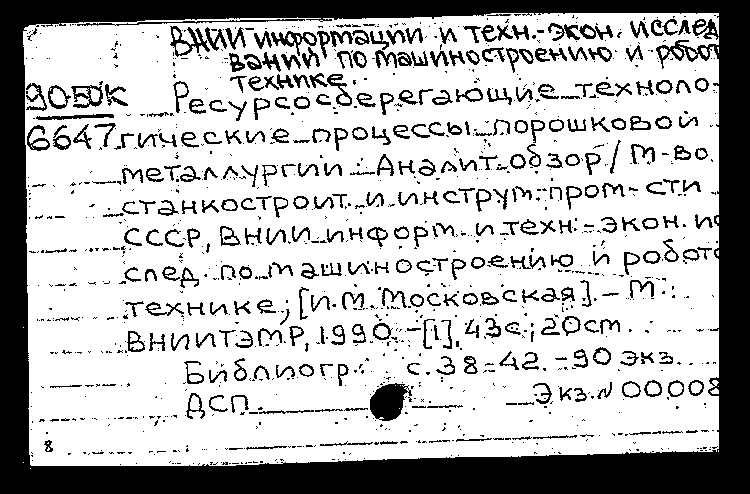 ВНИИ информации и техн.-экон. исслед
ваний по машиностроению и робот
технике.
90-50К
Ресурсосберегающие техноло-
6647 гические процессы порошковой
металлургии: Аналит. обзор / М-во
станкостроит. и инструм. пром-сти
СССР, ВНИИ информ. и техн.-экон. ис
след. по машиностроению и робото
технике; [И.М. Московская]. - М.:
ВНИИТЭМР, 1990. - [1], 43 с.; 20 cm.
Библиогр.: с. 38-42. - 90 экз.
ДСП. Экз. N 00008
8